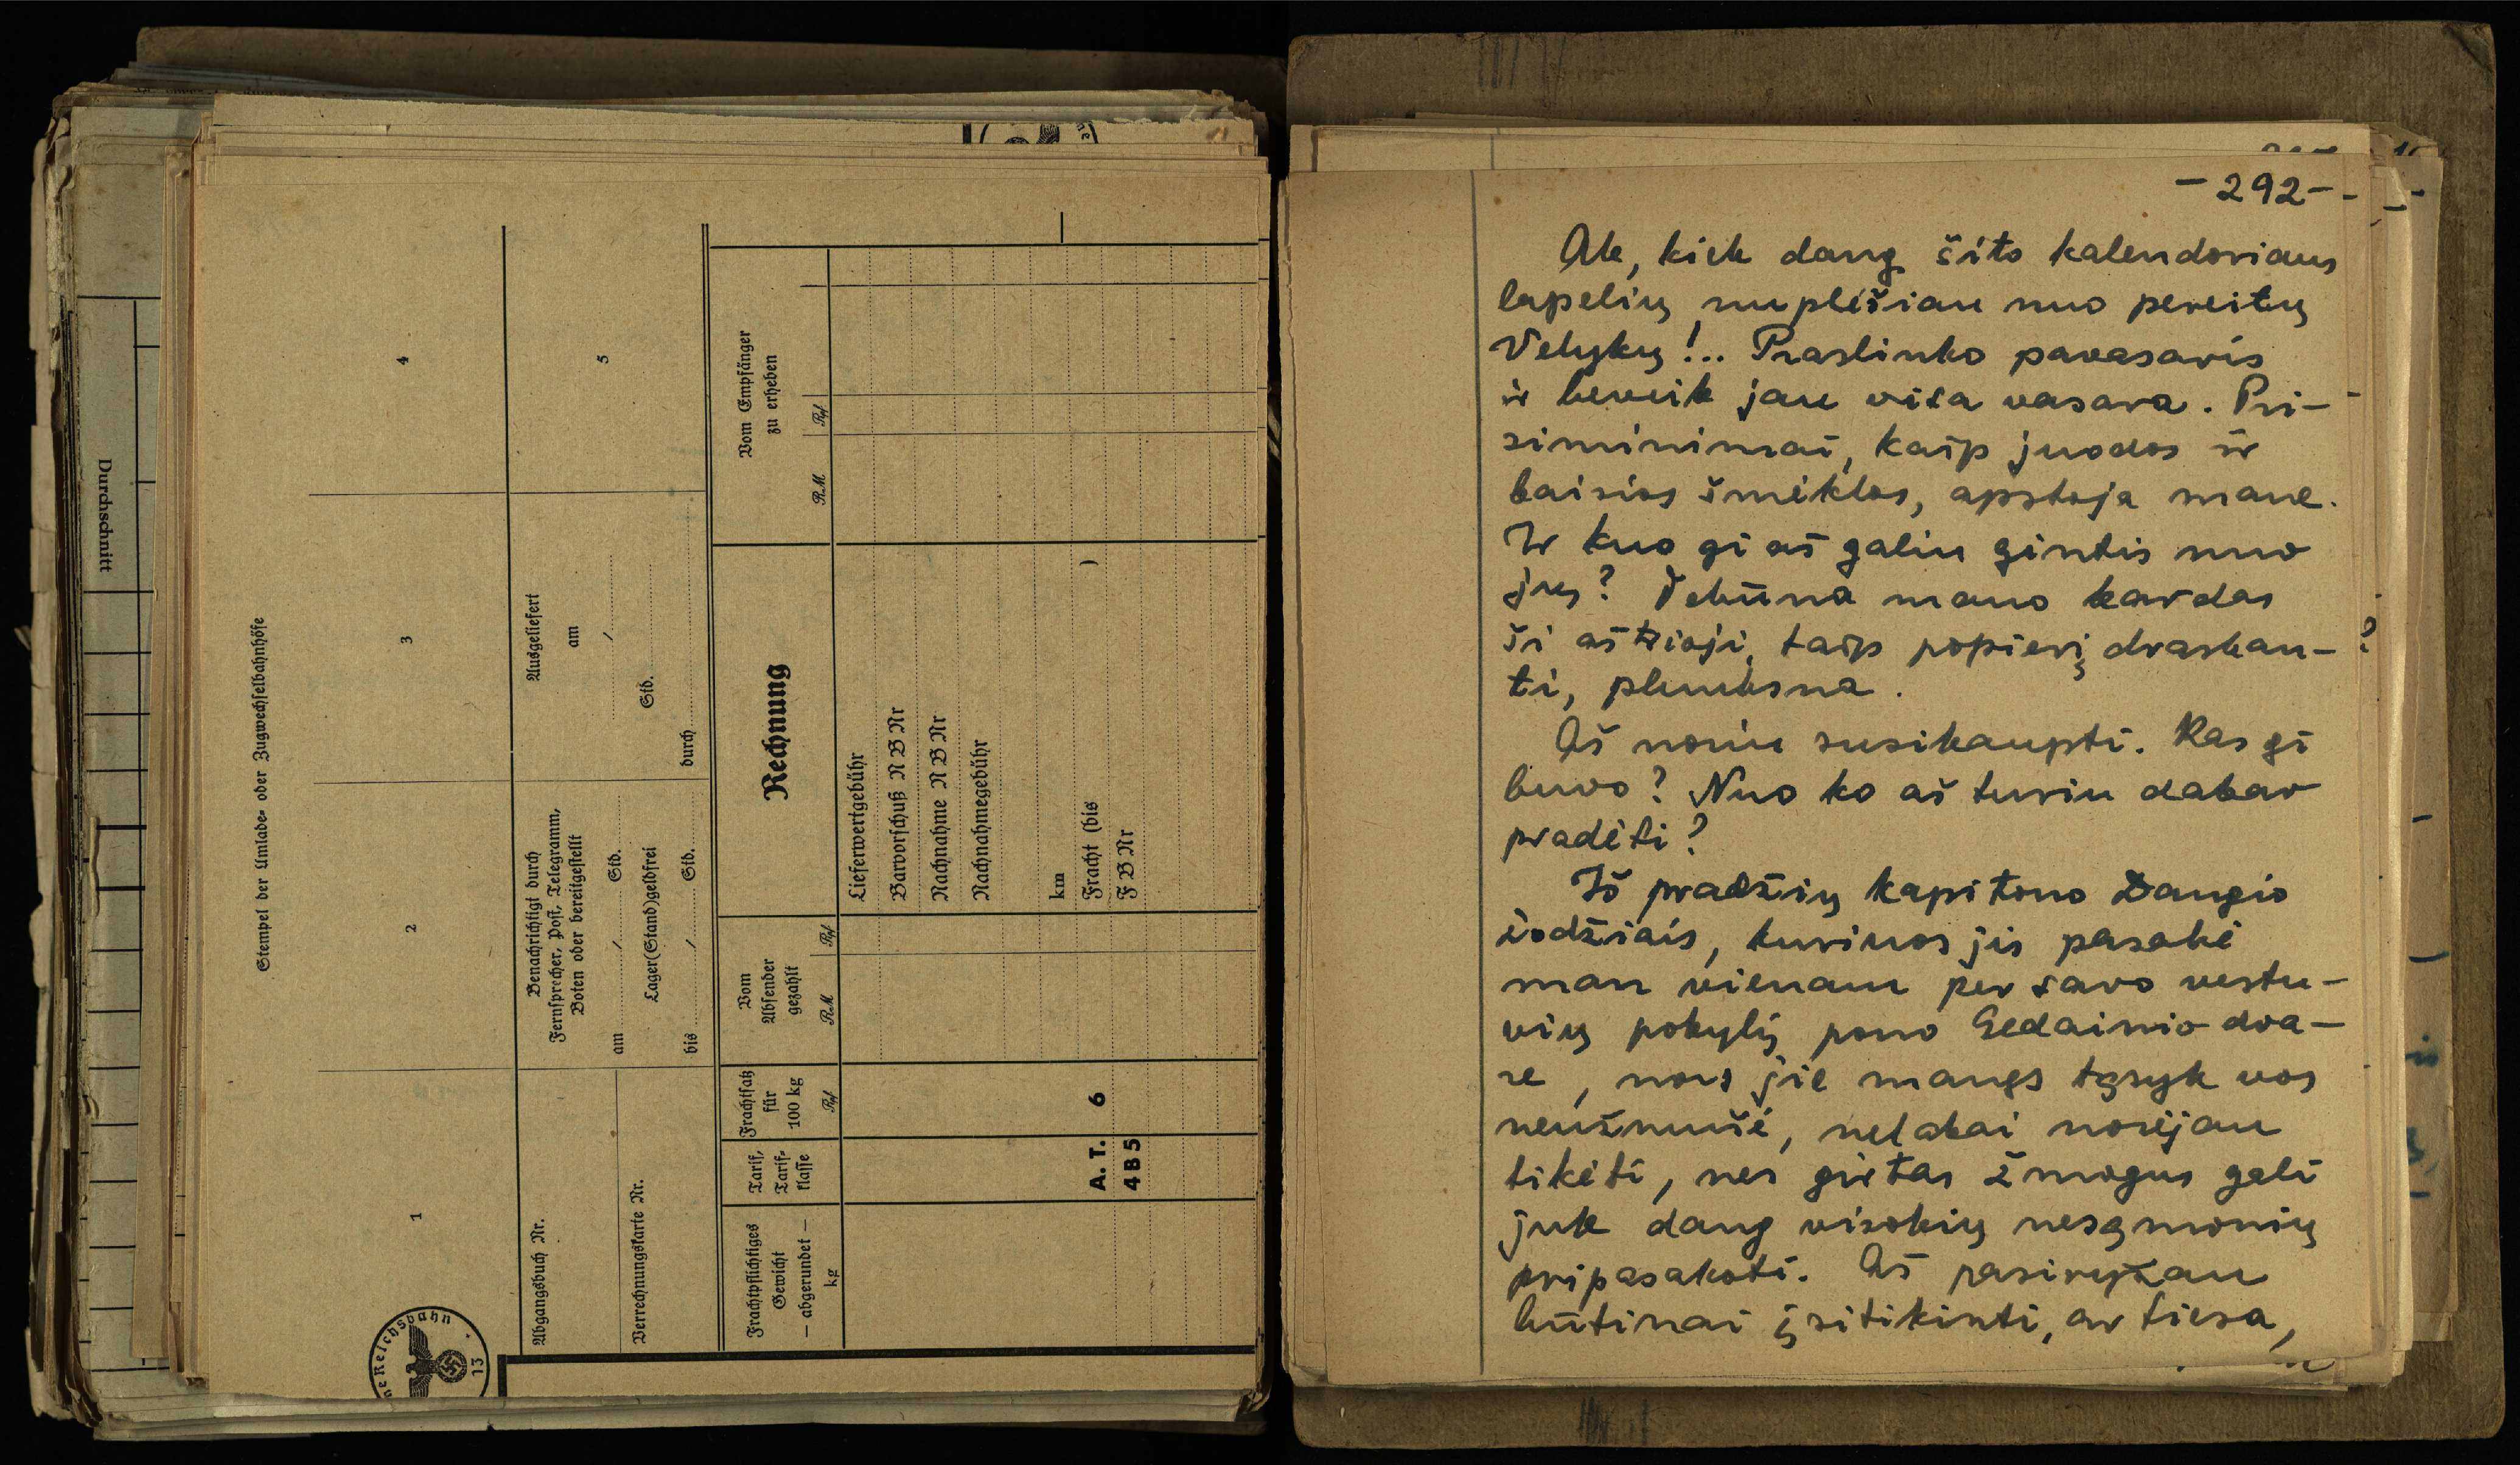 Durchschnitt
Stempel der Umlade- oder Zugwechselbahnhöfe
1
2
3
4
5
Abgangsbuch Nr.
Verrechnungskarte Nr.
Benachrichtigt durch
Fernsprecher, Post, Telegramm,
Boten oder bereitgestellt
am / Std.
Lager(Stand)geldfrei
bis / Std.
Ausgeliefert
am
/
Std.
durch
Frachtpflichtiges
Gewicht
— abgerundet —
kg
Tarif,
Tarif-
klasse
Frachtsatz
für
100 kg
Rpf
Vom
Absender
gezahlt
RM Rpf
Rechnung
Vom Empfänger
zu erheben
RM Rpf
Lieferwertgebühr
Barvorschuß N B Nr
Nachnahme N B Nr
Nachnahmegebühr
km
A. T. 6 Fracht (bis )
4 B 5 F B Nr
13
-292-
Ak, kiek daug šito kalendoriaus
lapelių nuplėšiau nuo pereitų
Velykų!.. Praslinko pavasaris
ir beveik jau visa vasara. Pri-
siminimai, kaip juodos ir
baisios šmėklos, apstoja mane.
Ir kuo gi aš galiu gintis nuo
jų? Tebūna mano kardas
ši aštrioji, taip popierių draskan- ?
ti, plunksna.
Aš noriu susikaupti. Kas gi
buvo? Nuo ko aš turiu dabar
pradėti?
Iš pradžių kapitono Daugio
žodžiais, kuriuos jis pasakė
man vienam per savo vestu-
vių pokylį pono Gedainio dva-
re, nors jie manęs tąsyk vos
neužmušė, nelabai norėjau
tikėti, nes girtas žmogus gali
juk daug visokių nesąmonių
pripasakoti. Aš pasiryžau
būtinai įsitikinti, ar tiesa,